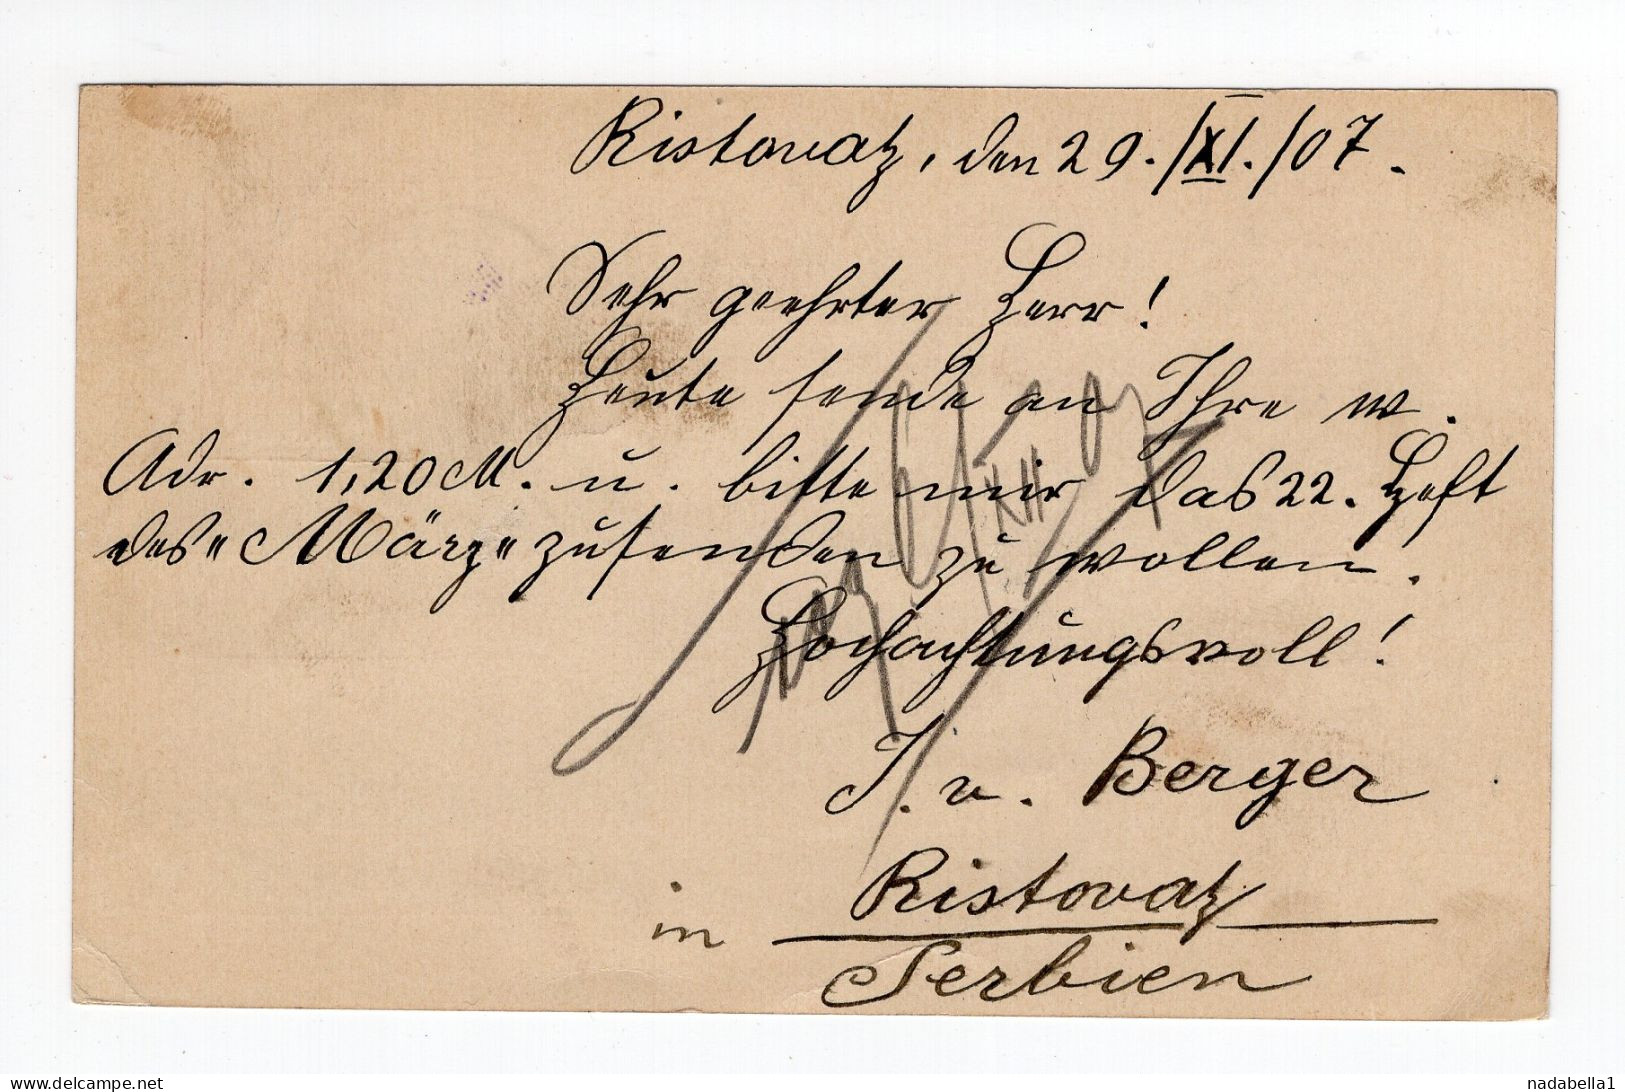 Ristovatz, den 29./XI./07.
Sehr geehrter Herr!
Heute sende an Ihre w.
Adr. 1,20 M. u. bitte mir das 22. Heft
des „März“ zusenden zu wollen.
Hochachtungsvoll!
J. v. Berger
in Ristovatz
Serbien
delcampe.net
nadabella1